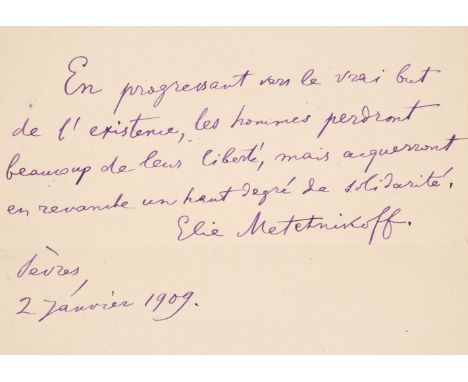 En progressant vers le vrai but
de l'existence, les hommes perdront
beaucoup de leur liberté, mais acquerront
en revanche un haut degré de solidarité.
Elie Metchnikoff.
Sèvres,
2 Janvier 1909.